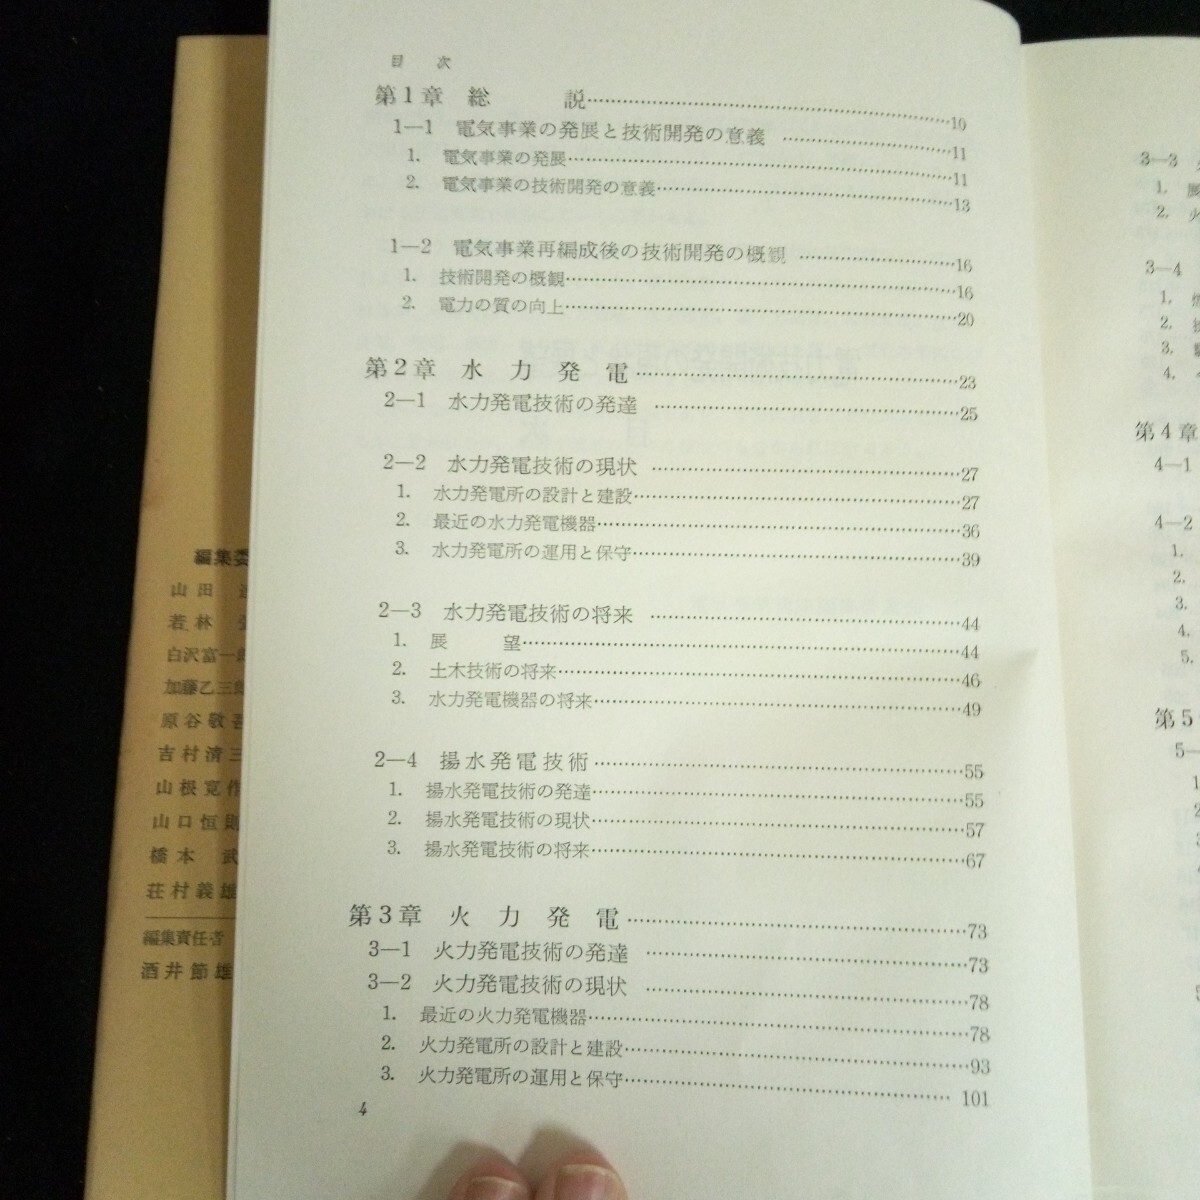 目　次
第1章　総　　説……10
1—1　電気事業の発展と技術開発の意義……11
1.　電気事業の発展……11
2.　電気事業の技術開発の意義……13
1—2　電気事業再編成後の技術開発の概観……16
1.　技術開発の概観……16
2.　電力の質の向上……20
第2章　水　力　発　電……23
2—1　水力発電技術の発達……25
2—2　水力発電技術の現状……27
1.　水力発電所の設計と建設……27
2.　最近の水力発電機器……36
3.　水力発電所の運用と保守……39
2—3　水力発電技術の将来……44
1.　展　　望……44
2.　土木技術の将来……46
3.　水力発電機器の将来……49
2—4　揚水発電技術……55
1.　揚水発電技術の発達……55
2.　揚水発電技術の現状……57
3.　揚水発電技術の将来……67
第3章　火　力　発　電……73
3—1　火力発電技術の発達……73
3—2　火力発電技術の現状……78
1.　最近の火力発電機器……78
2.　火力発電所の設計と建設……93
3.　火力発電所の運用と保守……101
4
編集委
山田
若林
白沢富一郎
加藤乙三郎
原谷敬吾
吉村清三
山根寛作
山口恒則
橋本　武
荘村義雄
編集責任者
酒井節雄
3—3
1.　展
2.　火
3—4
1.
2.
3.
4.
第4章
4—1
4—2
1.
2.
3.
4.
5.
第5
5—
1
2
3